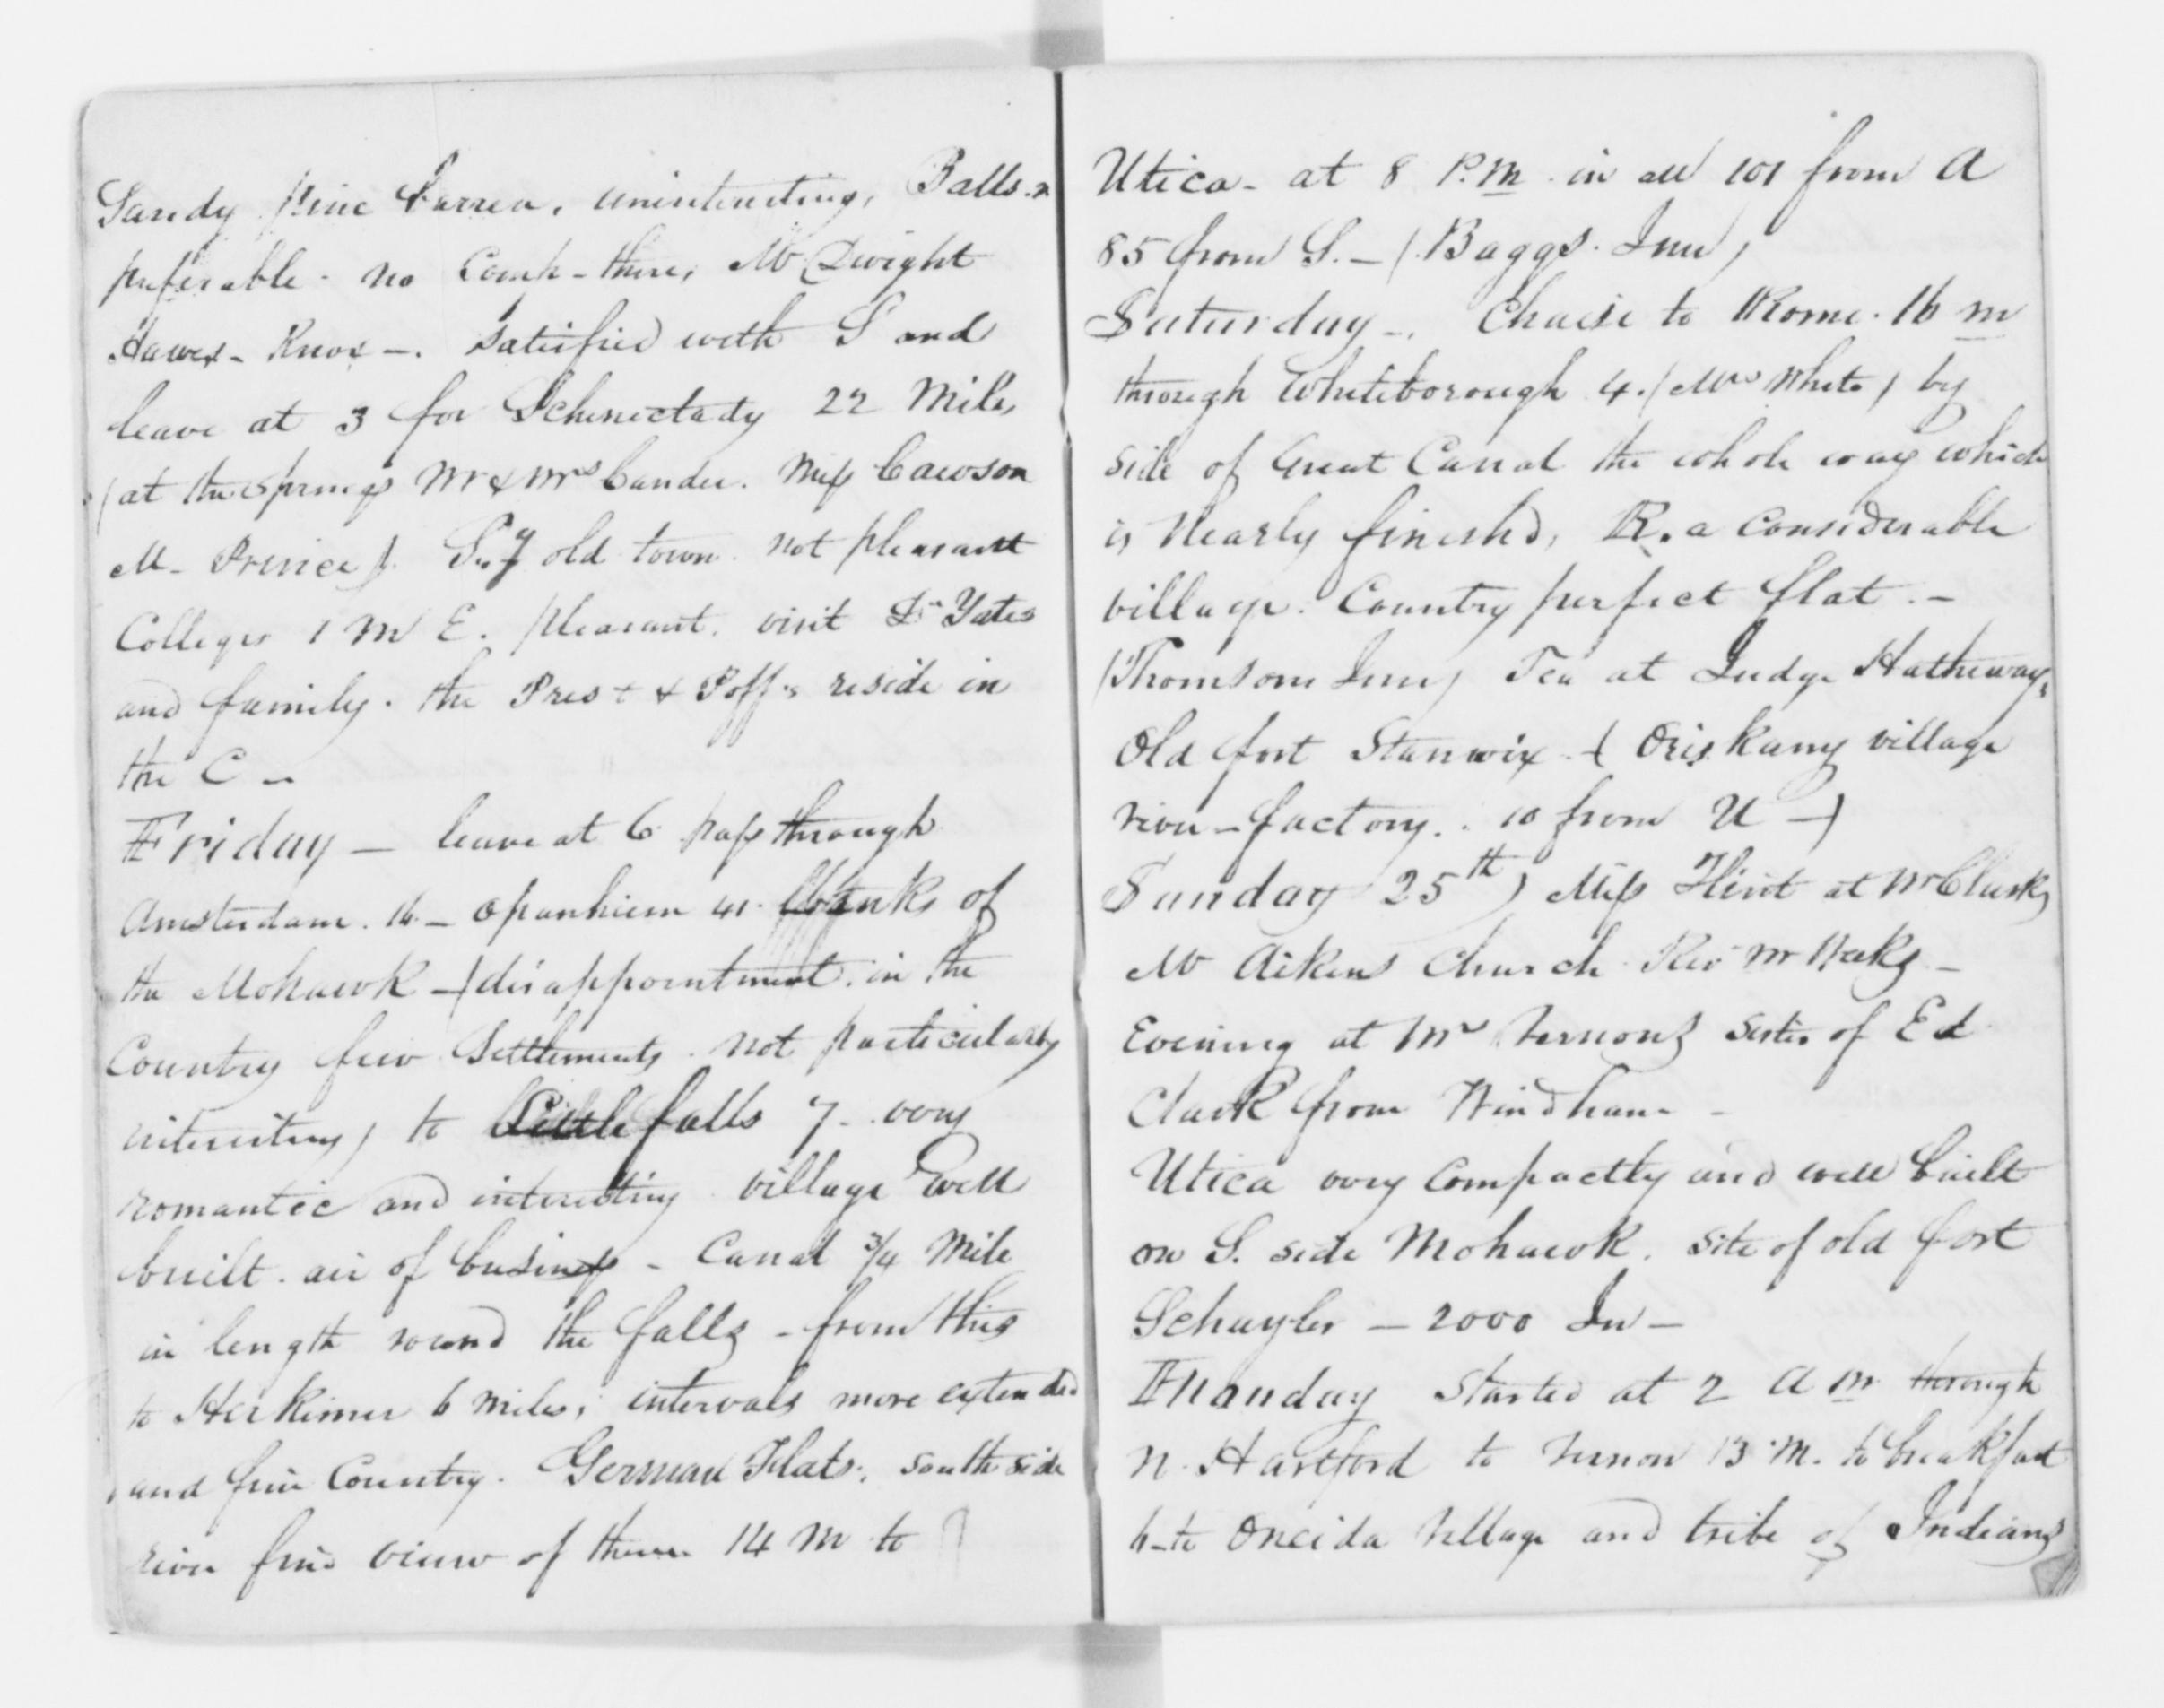 Sandy pine barren, uninteresting, Balls-n
preferable - no Comp - there, Mr Dwight
Hawes - Knox -. Satisfied with S and
leave at 3 for Schenectady 22 Miles
(at the Springs Mr & Mrs Cander. Miss Cawson
M - Prince). Sy old town. not pleasant
Colleges 1 M E. pleasant. visit Dr Yates
and family. the Prest & Poffs reside in
the C -
Friday - leave at 6 pass through
Amsterdam. 16 - Opanhiem 41 banks of
the Mohawk - (disappointment. in the
Country few Settlements. not particularly
interesting) to Little falls 7 - very
romantic and interesting village well
built. air of business - Canal 3/4 Mile
in length round the falls - from this
to Herkimer 6 miles; intervals more extended
and fine Country. German Flats; south side
river fine view of them 14 M to
Utica - at 8 P.M in all 101 from A
85 from S. - (Baggs. Inn)
Saturday -. Chaise to Rome. 16 m
through Whitesborough 4. (Mrs White) by
side of Great Canal the whole way which
is Nearly finishd, R. a Considerable
village. Country perfect flat. -
(Thomsons Inn) Tea at Judge Hatheways
Old fort Stanwix - (Oriskany village
river - factory. 10 from U -)
Sunday 25th) Miss Flint at Mr Clarks
Mr Aikens Church Rev Mr Weeks -
Evening at Mr Vernons sister of Ed
Clark from Windham -
Utica very Compactly and well built
on S. side Mohawk. site of old fort
Schuyler - 2000 In -
Monday Started at 2 A m through
N. Hartford to Vernon 13 M. to breakfast
6 - to Oneida Village and tribe of Indians